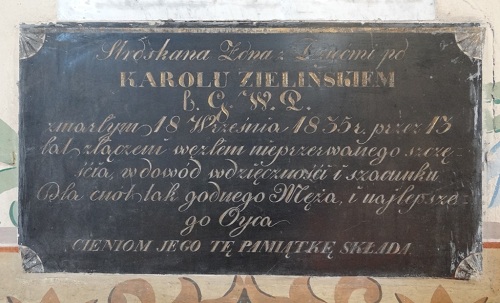 Stroskana Żona z Dziećmi po
KAROLU ZIELIŃSKIEM
b. G. W. P.
zmarłym 18 Września 1835 r. przez 13
lat złączeni węzłem nieprzerwanego szczę-
ścia, w dowód wdzięczności i szacunku
Dla cnót tak godnego Męża, i najlepsze-
go Oyca
CIENIOM JEGO TĘ PAMIĄTKĘ SKŁADA